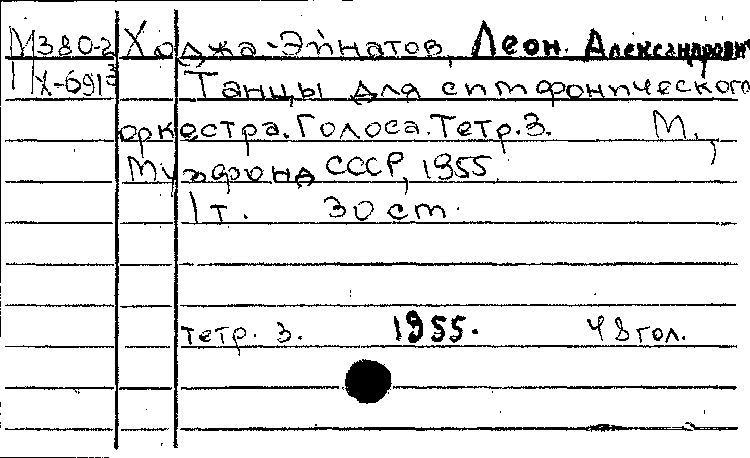 М380-2 Ходжа-Эйнатов, Леон. Александрович
Х-691³ Танцы для симфонического
оркестра. Голоса. Тетр. 3. М.,
Музфонд СССР, 1955
1 т. 30 см.
тетр. 3. 1955. 48 гол.